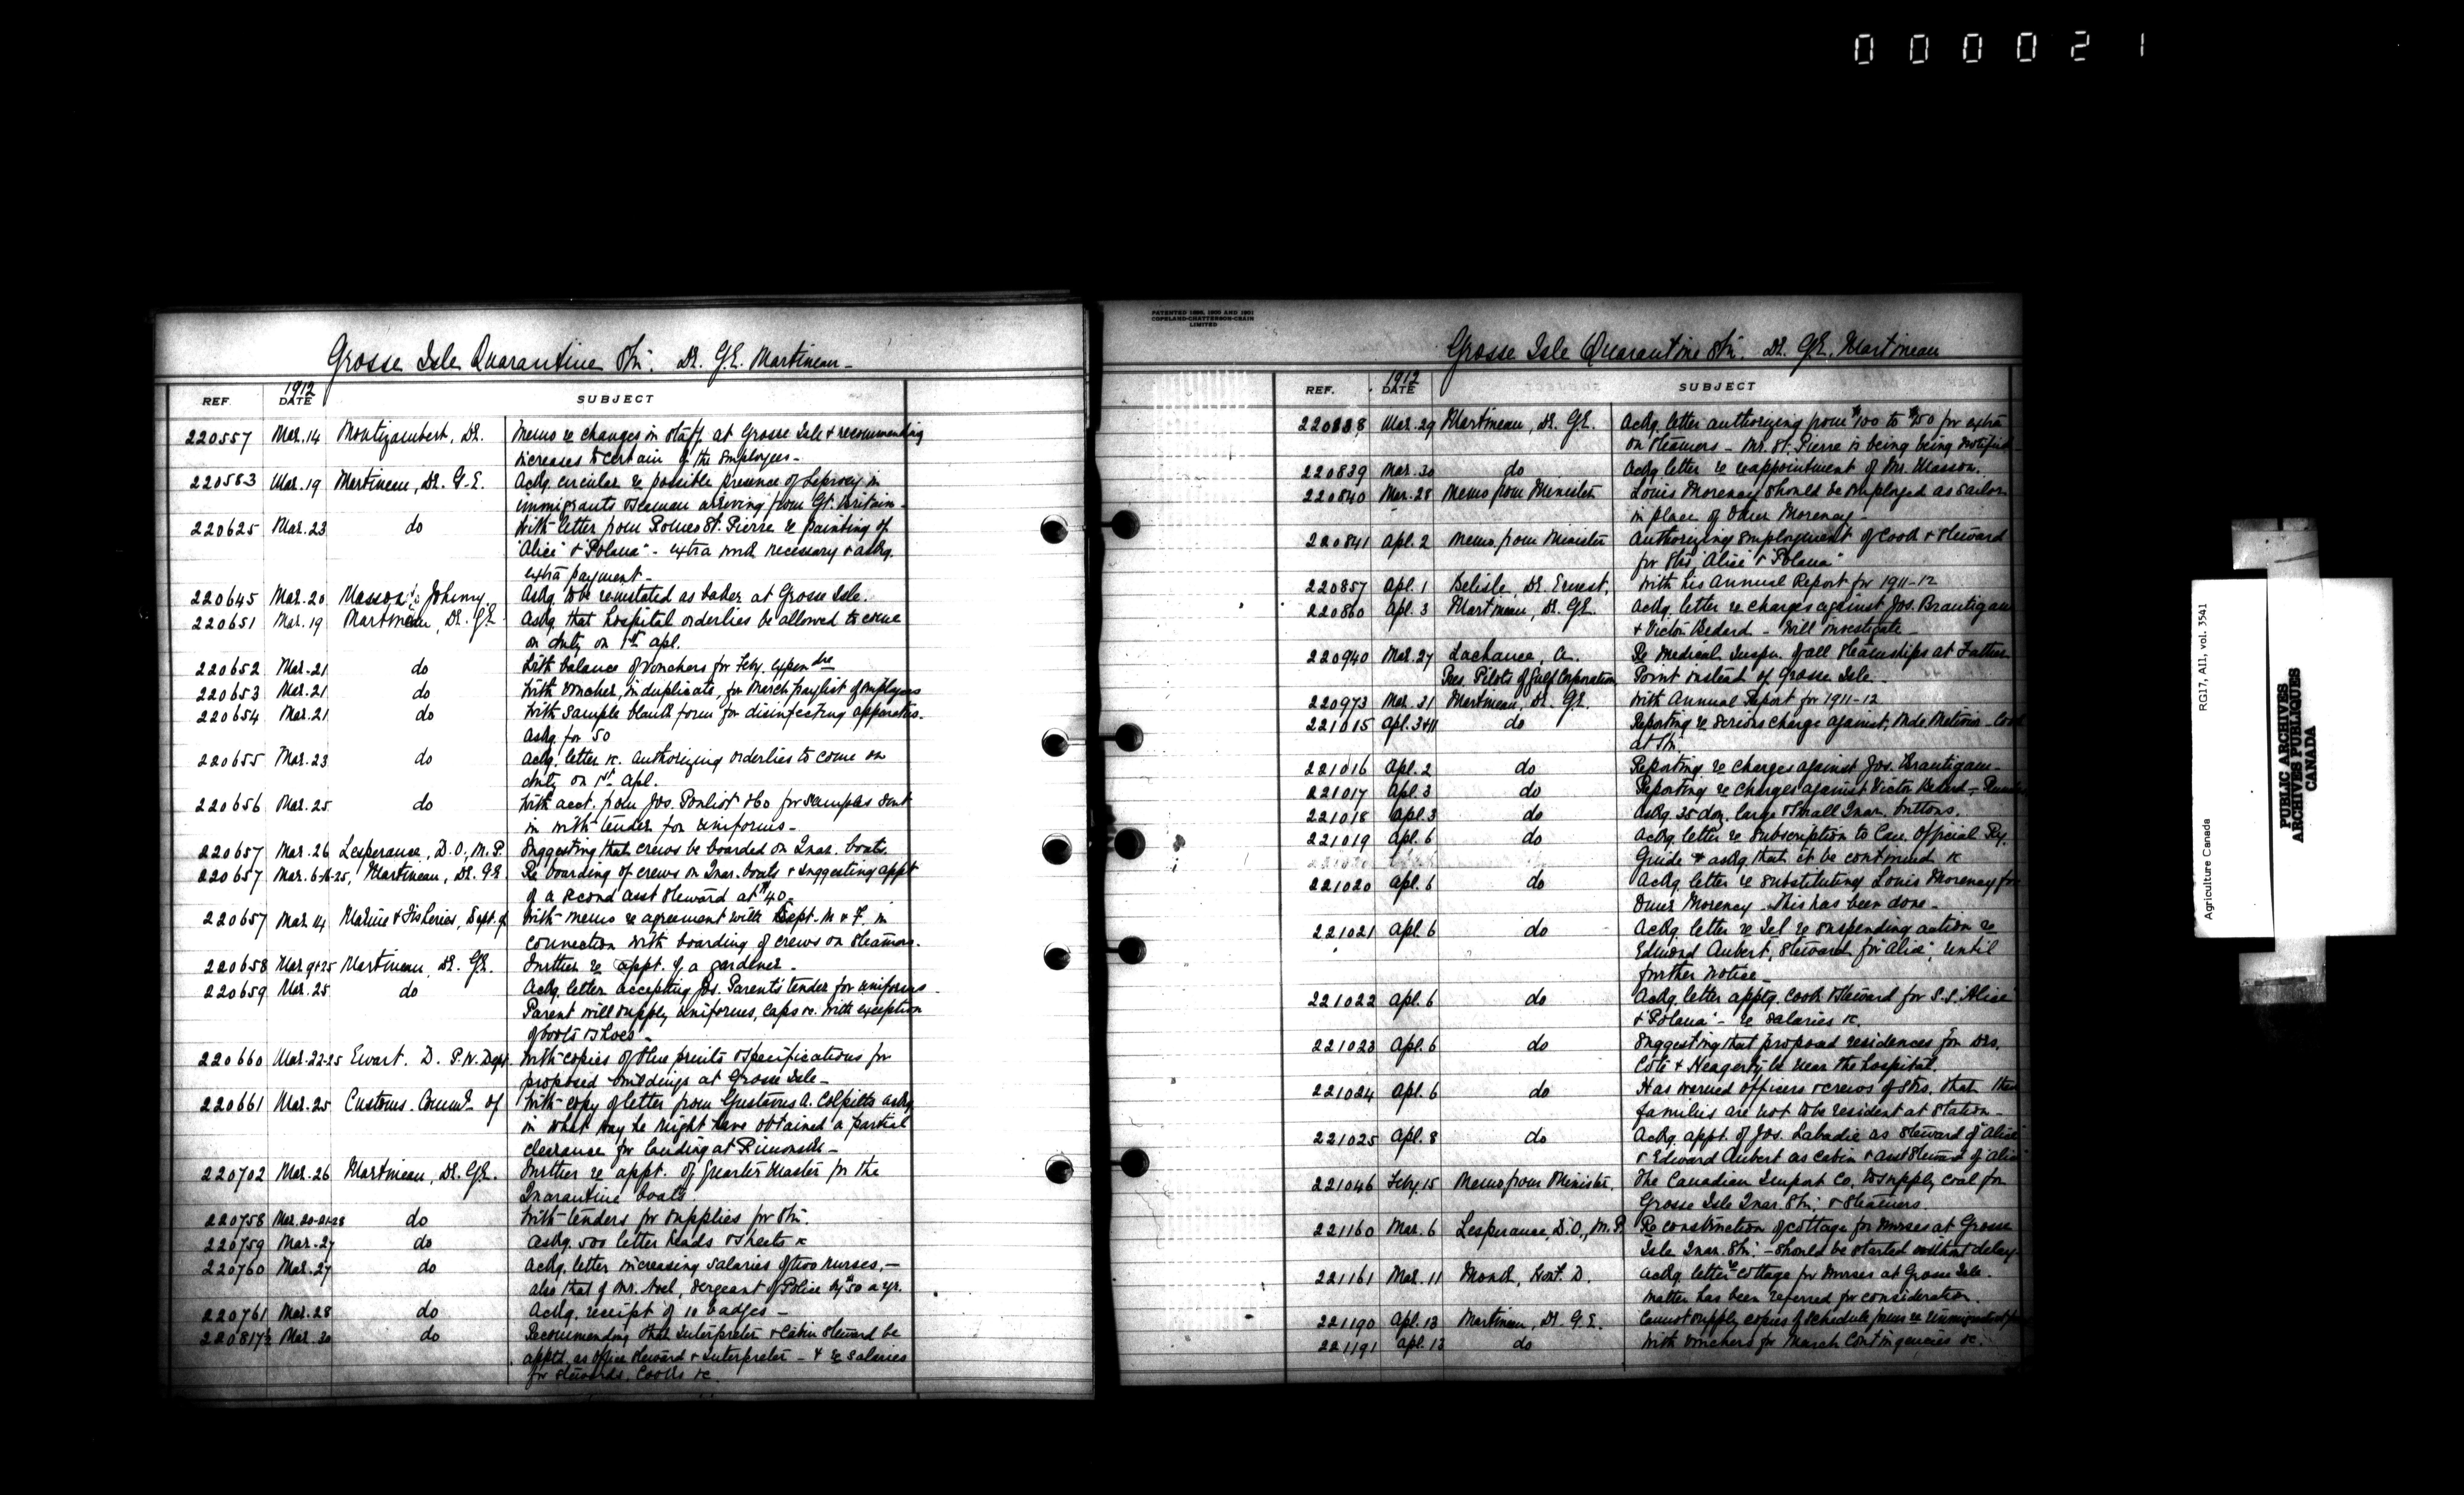 000021
Grosse Isle Quarantine Stn. Dr. G.E. Martineau -
REF. 1912 DATE SUBJECT
220557 Mar. 14 Montizambert, Dr. Memo re changes in staff at Grosse Isle & recommending
increases to certain of the employees -
220583 Mar. 19 Martineau, Dr. G.E. Ackg. circular re possible presence of Leprosy in
immigrants & seamen arriving from Gt. Britain -
220625 Mar. 23 do With letter from Romeo St. Pierre re painting of
"Alice" & "Polana" - extra work necessary & askg.
extra payment -
220645 Mar. 20 Masson, Johnny. Askg. to be reinstated as baker at Grosse Isle.
220651 Mar. 19 Martineau, Dr. G.E. Askg. that hospital orderlies be allowed to come
on duty on 1st Apl.
220652 Mar. 21 do With balance of vouchers for Feby. expendre
220653 Mar. 21 do With voucher, in duplicate, for March paylist of employees
220654 Mar. 21 do With sample blank form for disinfecting apparatus.
askg. for 50
220655 Mar. 23 do Ackg. letter &c. authorizing orderlies to come on
duty on 1st Apl.
220656 Mar. 25 do With acct. from Jos. Pouliot $60 for samples sent
in with tender for uniforms -
220657 Mar. 26 Lesperance, D.O., M.P. Suggesting that crews be boarded on Quar. boats.
220657 Mar. 6-16-25, Martineau, Dr. G.E. Re boarding of crews on Quar. boats & suggesting appt
of a second asst steward at $40 -
220657 Mar. 14 Marine & Fisheries, Dept. of With memo re agreement with Dept. M & F in
connection with boarding of crews on steamers.
220658 Mar. 9&25 Martineau, Dr. G.E. Further re appt. of a gardener -
220659 Mar. 25 do Ackg. letter accepting Jos. Parent's tender for uniforms -
Parent will supply uniforms, caps &c. with exception
of boots & shoes -
220660 Mar. 22-25 Ewart. D. P.W. Dept. With copies of blue prints & specifications for
proposed buildings at Grosse Isle -
220661 Mar. 25 Customs. Commr. of With copy of letter from Gustavus A. Colpitts askg
in what way he might have obtained a partial
clearance for landing at Rimouski -
220702 Mar. 26 Martineau, Dr. G.E. Further re appt. of Quarter Master for the
Quarantine boats
220758 Mar. 20-21-28 do With tenders for supplies for Stn.
220759 Mar. 27 do Askg. 500 letter heads & sheets &c
220760 Mar. 27 do Ackg. letter increasing salaries of two nurses, -
also that of Mr. Noel, Sergeant of Police by $50 a yr.
220761 Mar. 28 do Ackg. receipt of 10 badges -
220817½ Mar. 30 do Recommending that Interpreter & Cabin Steward be
apptd. as Office Steward & Interpreter - & re salaries
for stewards, Cooks &c.
PATENTED 1898, 1900 AND 1901
COPELAND-CHATTERSON-CRAIN
LIMITED
Grosse Isle Quarantine Stn. Dr. G.E. Martineau
REF. 1912 DATE SUBJECT
220838 Mar. 29 Martineau, Dr. G.E. Ackg. letter authorizing from $100 to $150 for extra
on steamers - Mr. St. Pierre is being being notified
220839 Mar. 30 do Ackg. letter re reappointment of Mr. Masson.
220840 Mar. 28 Memo from Minister Louis Morency should be employed as sailor
in place of Omer Morency
220841 Apl. 2 Memo from Minister Authorizing employment of Cook & Steward
for Strs. "Alice" & "Polana"
220857 Apl. 1 Belisle, Dr. Ernest, With his Annual Report for 1911-12
220860 Apl. 3 Martineau, Dr. G.E. Ackg. letter re charges against Jos. Brautigam
& Victor Bedard - Will investigate -
220940 Mar. 27 Lachance, A. Re Medical Inspn. of all steamships at Father
Pres. Pilots of Gulf Corporation Point instead of Grosse Isle -
220973 Mar. 31 Martineau, Dr. G.E. With Annual Report for 1911-12
221015 Apl. 3&11 do Reporting re serious charge against, Mde. Metivier - Cook
at Stn.
221016 Apl. 2 do Reporting re charges against Jos. Brautigam -
221017 Apl. 3 do Reporting re charges against Victor Bedard -
221018 Apl. 3 do Askg. 25 doz. large & small Quar. buttons.
221019 Apl. 6 do Ackg. letter re subscription to Can. Official Ry.
Guide & askg. that it be continued &c
221020 Apl. 6 do Ackg. letter re substituting Louis Morency for
Omer Morency. This has been done -
221021 Apl. 6 do Ackg. letter re Tel re suspending action re
Edmond Aubert, Steward for "Alice", until
further notice -
221022 Apl. 6 do Ackg. letter apptg. Cook & Steward for S.S. "Alice"
& "Polana" - re salaries &c.
221023 Apl. 6 do Suggesting that proposed residences for Drs.
Côté & Heagerty be near the hospital.
221024 Apl. 6 do Has warned officers & crews of Strs. that their
families are not to be resident at station -
221025 Apl. 8 do Ackg. appt. of Jos. Labadie as Steward of "Alice"
& Edward Aubert as Cabin & asst Steward of "Alice"
221046 Feby. 15 Memo from Minister. The Canadian Import Co. to supply coal for
Grosse Isle Quar. Stn. & Steamers.
221160 Mar. 6 Lesperance, D.O., M.P. Re construction of cottage for nurses at Grosse
Isle Quar. Stn. - should be started without delay -
221161 Mar. 11 Monk, Hon. F. D. Ackg letter re cottage for nurses at Grosse Isle.
matter has been referred for consideration.
221190 Apl. 13 Martineau, Dr. G.E. Cannot supply copies of schedule forms re
221191 Apl. 13 do With vouchers for March Contingencies &c.
Agriculture Canada RG17, AII, vol. 3541
PUBLIC ARCHIVES
ARCHIVES PUBLIQUES
CANADA